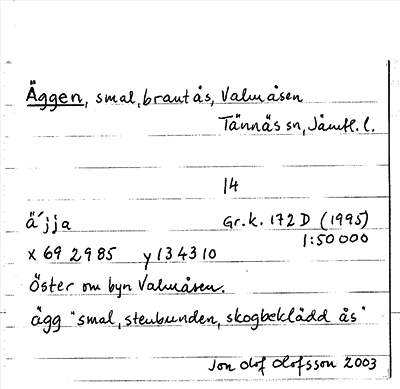 Äggen, smal, brant ås, Valmåsen
Tännäs sn, Jämtl. l.
14
ä´jja
Gr.k. 172 D (1995)
1:50 000
x 69 2985 y 134310
Öster om byn Valmåsen.
ägg "smal, stenbunden, skogbeklädd ås"
Jon Olof Olofsson 2003